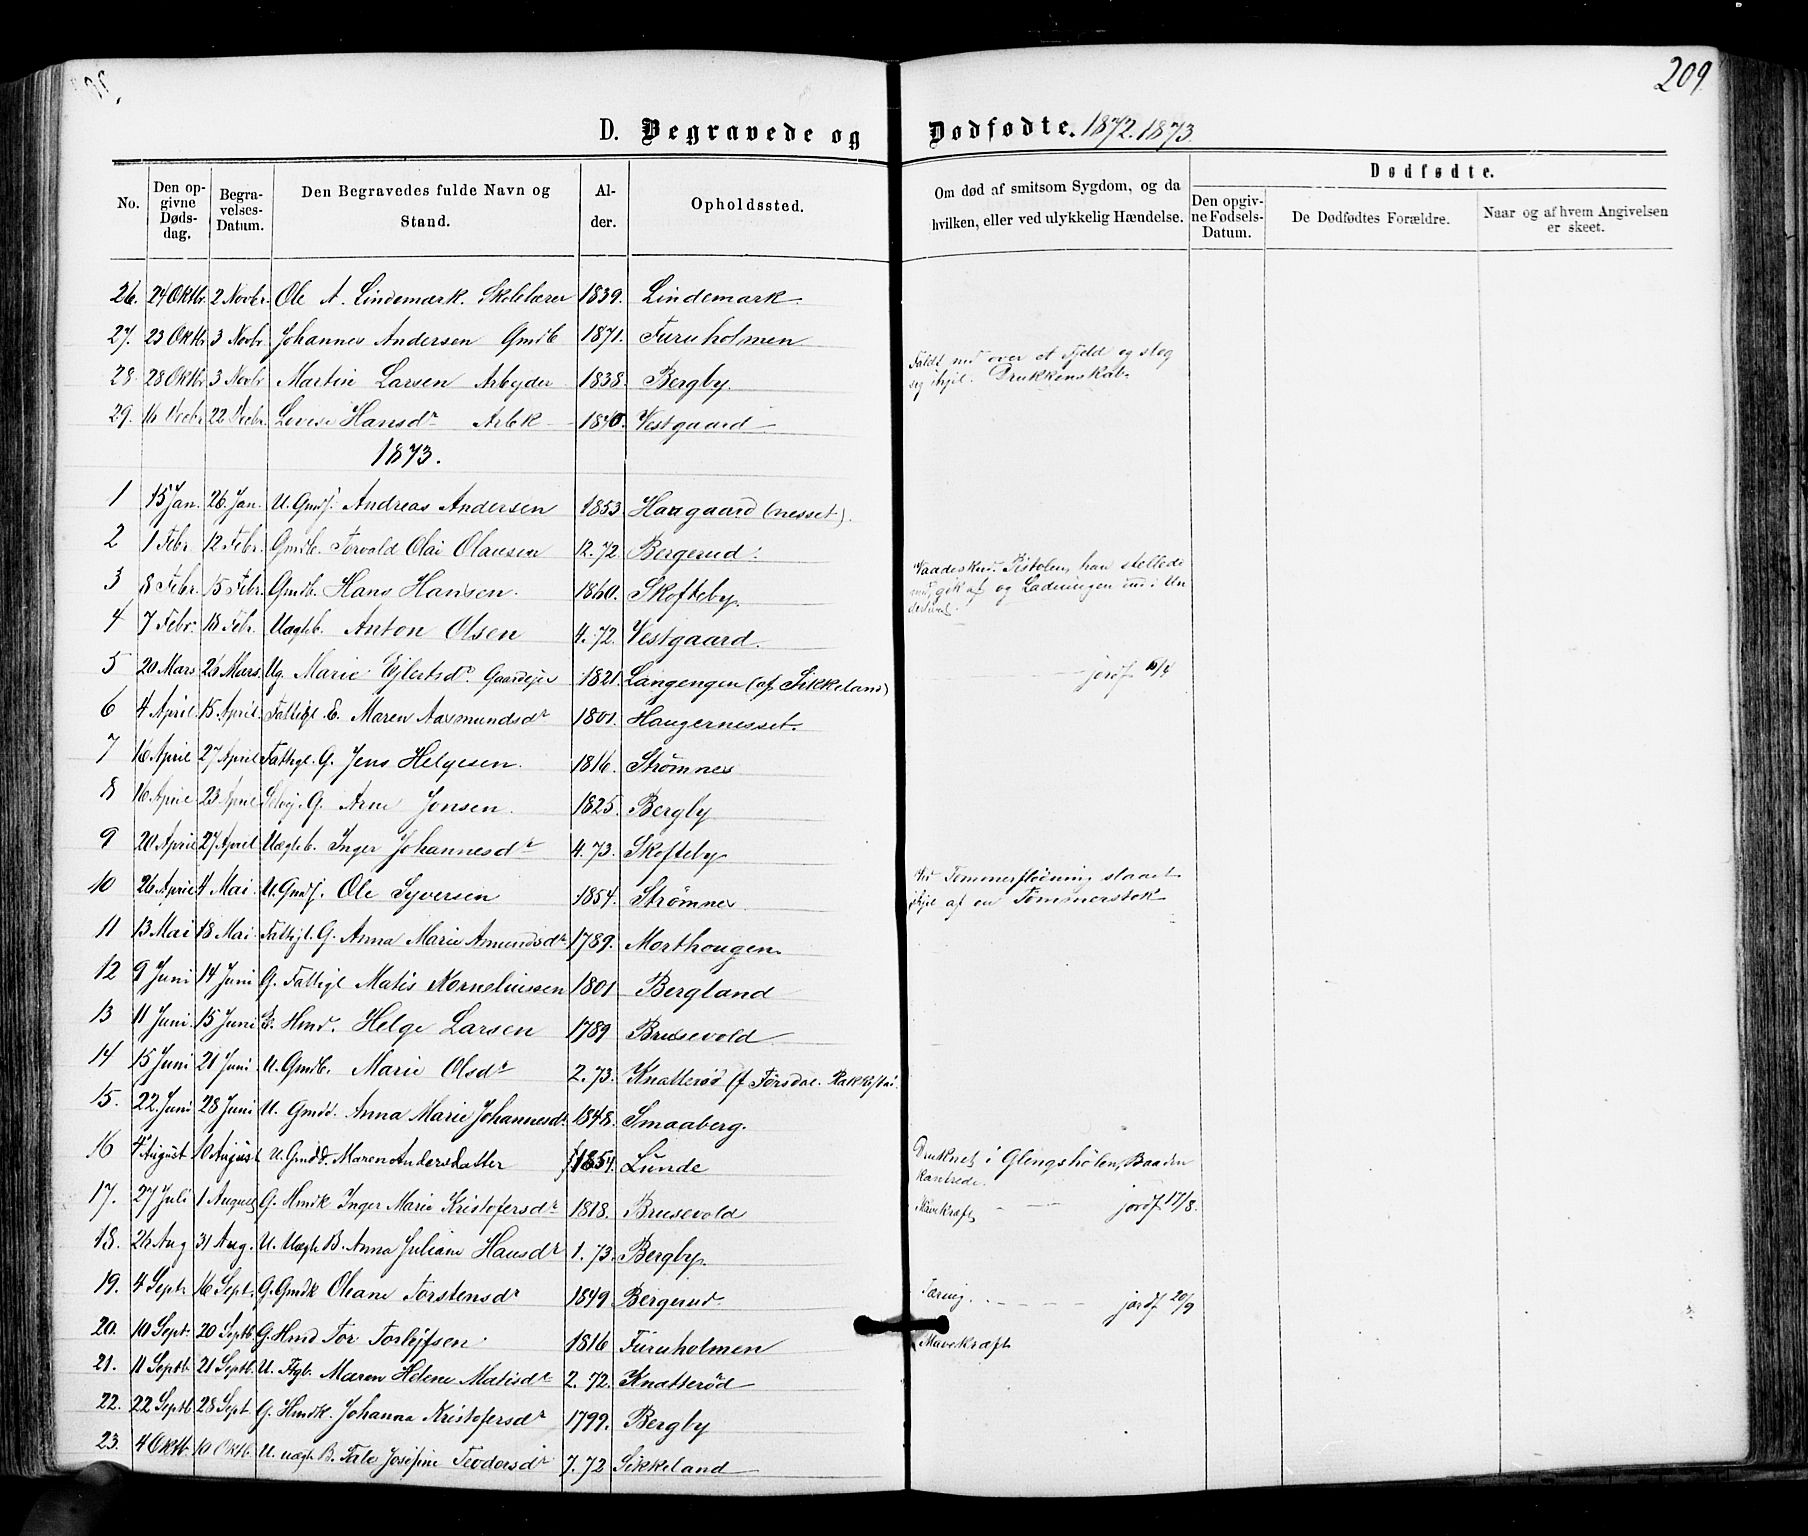 209
D. Begravede og Dødfødte. 1872. 1873.
No. Den opgivne Dødsdag. Begravelses-Datum. Den Begravedes fulde Navn og Stand. Alder. Opholdssted. Om død af smitsom Sygdom, og da hvilken, eller ved ulykkelig Hændelse. Dødfødte. Den opgivne Fødsels-Datum. De Dødfødtes Forældre. Naar og af hvem Angivelsen er skeet.
26. 24 Oktbr. 2 Novbr. Ole A. Lindemark. Skolelærer 1839. Lindemark.
27. 23 Oktbr 3 Novbr. Johannes Andersen Gmdb 1871. Furuholmen
28. 28 Oktbr 3 Novbr Martin Larsen Arbyder 1838. Bergby. Faldt ned over et Fjeld og slog
seg ihjel. Drukkenskab.
29. 16 Decbr 22 Decbr. Hansdr Arbk 1840. Vestgaard
1873.
1 15 Jan. 26 Jan. U. Gmdf. Andreas Andersen 1853. Haugaard (nesset).
2 1 Febr 12 Febr. Gmdb. Torvald Olai Olausen 12. 72. Bergerud.
3 8 Febr. 15 Febr. Gmdb. Hans Hansen. 1860. Skofteby. Vaadeskud. Pistolen, han stellede
med, gik af og Ladningen ind i Un
derlivet.
4 7 Febr. 18 Febr. Uægteb. Anton Olsen 4. 72. Vestgaard.
5 20 Mars 26 Mars. Ug. Marie Ejlertsdr. Gaardejer 1821. Langengen (af Sikkeland) jordf. 16/4
6 4 April 15 April. Fattigl E. Maren Aasmundsdr 1801. Haugernesset.
7 16 April 27 April Fattigl. G. Jens Helgesen. 1816. Strømnes
8 16 April 23 April Selvej. G. Arne Jonsen. 1825. Bergby
9 20 April 27 April Uægteb. Inger Johannesdr 4. 73. Skofteby
10 26 April 4 Mai U. Gmdf. Ole Syversen 1854. Strømnes Ved Tømmerflødning slaaet
ihjel af en Tømmerstok
11 13 Mai 18 Mai. Fattigl. G. Anna Marie Amundsdr 1789. Morthougen
12 9 Juni 14 Juni G. Fattigl Matis Kornelinssen 1801 Bergland
13 11 Juni 15 Juni E. Hmd. Helge Larsen 1789 Brusevold
14 15 Juni 21 Juni. U. Gmdb. Marie Olsdr 2. 73. Knatterød (f Førsdal. Rakkestad
15. 22 Juni 28 Juni U. Gmdd. Anna Marie Johannesdr. 1848. Smaaberg.
16 4 August 10 August U. Gmdd. Maren Andersdatter 1854. Lunde Druknet i Glingshølen, Baaden
kantrede.
17. 27 Juli 1 August G. Hmdk Inger Marie Kristofersdr 1818. Brusevold Mavekræft jordf. 17/8.
18. 26 Aug 31 Aug. U. Uægte B. Anna Juliane Hansdr 1. 73. Bergby.
19. 4 Septr 16 Sept. G. Gmdk Oleane Torstensdr 1849 Bergerud. Tæring. jordf 20/9
20. 10 Sept. 20 Septb. G. Hmd Tor Torlejfsen 1816 Furuholmen Mavekræft
21. 11 Septb 21 Septb. U. Ftgb. Maren Helene Matisdr 2. 72. Knatterød
22. 22 Septb 28 Sept G. Hmdk. Johanna Kristofersdr 1799. Bergby
23. 4 Oktb. 10 Oktb. U. uægte B. Josefine Teodorsdr 7. 72 Sikkeland